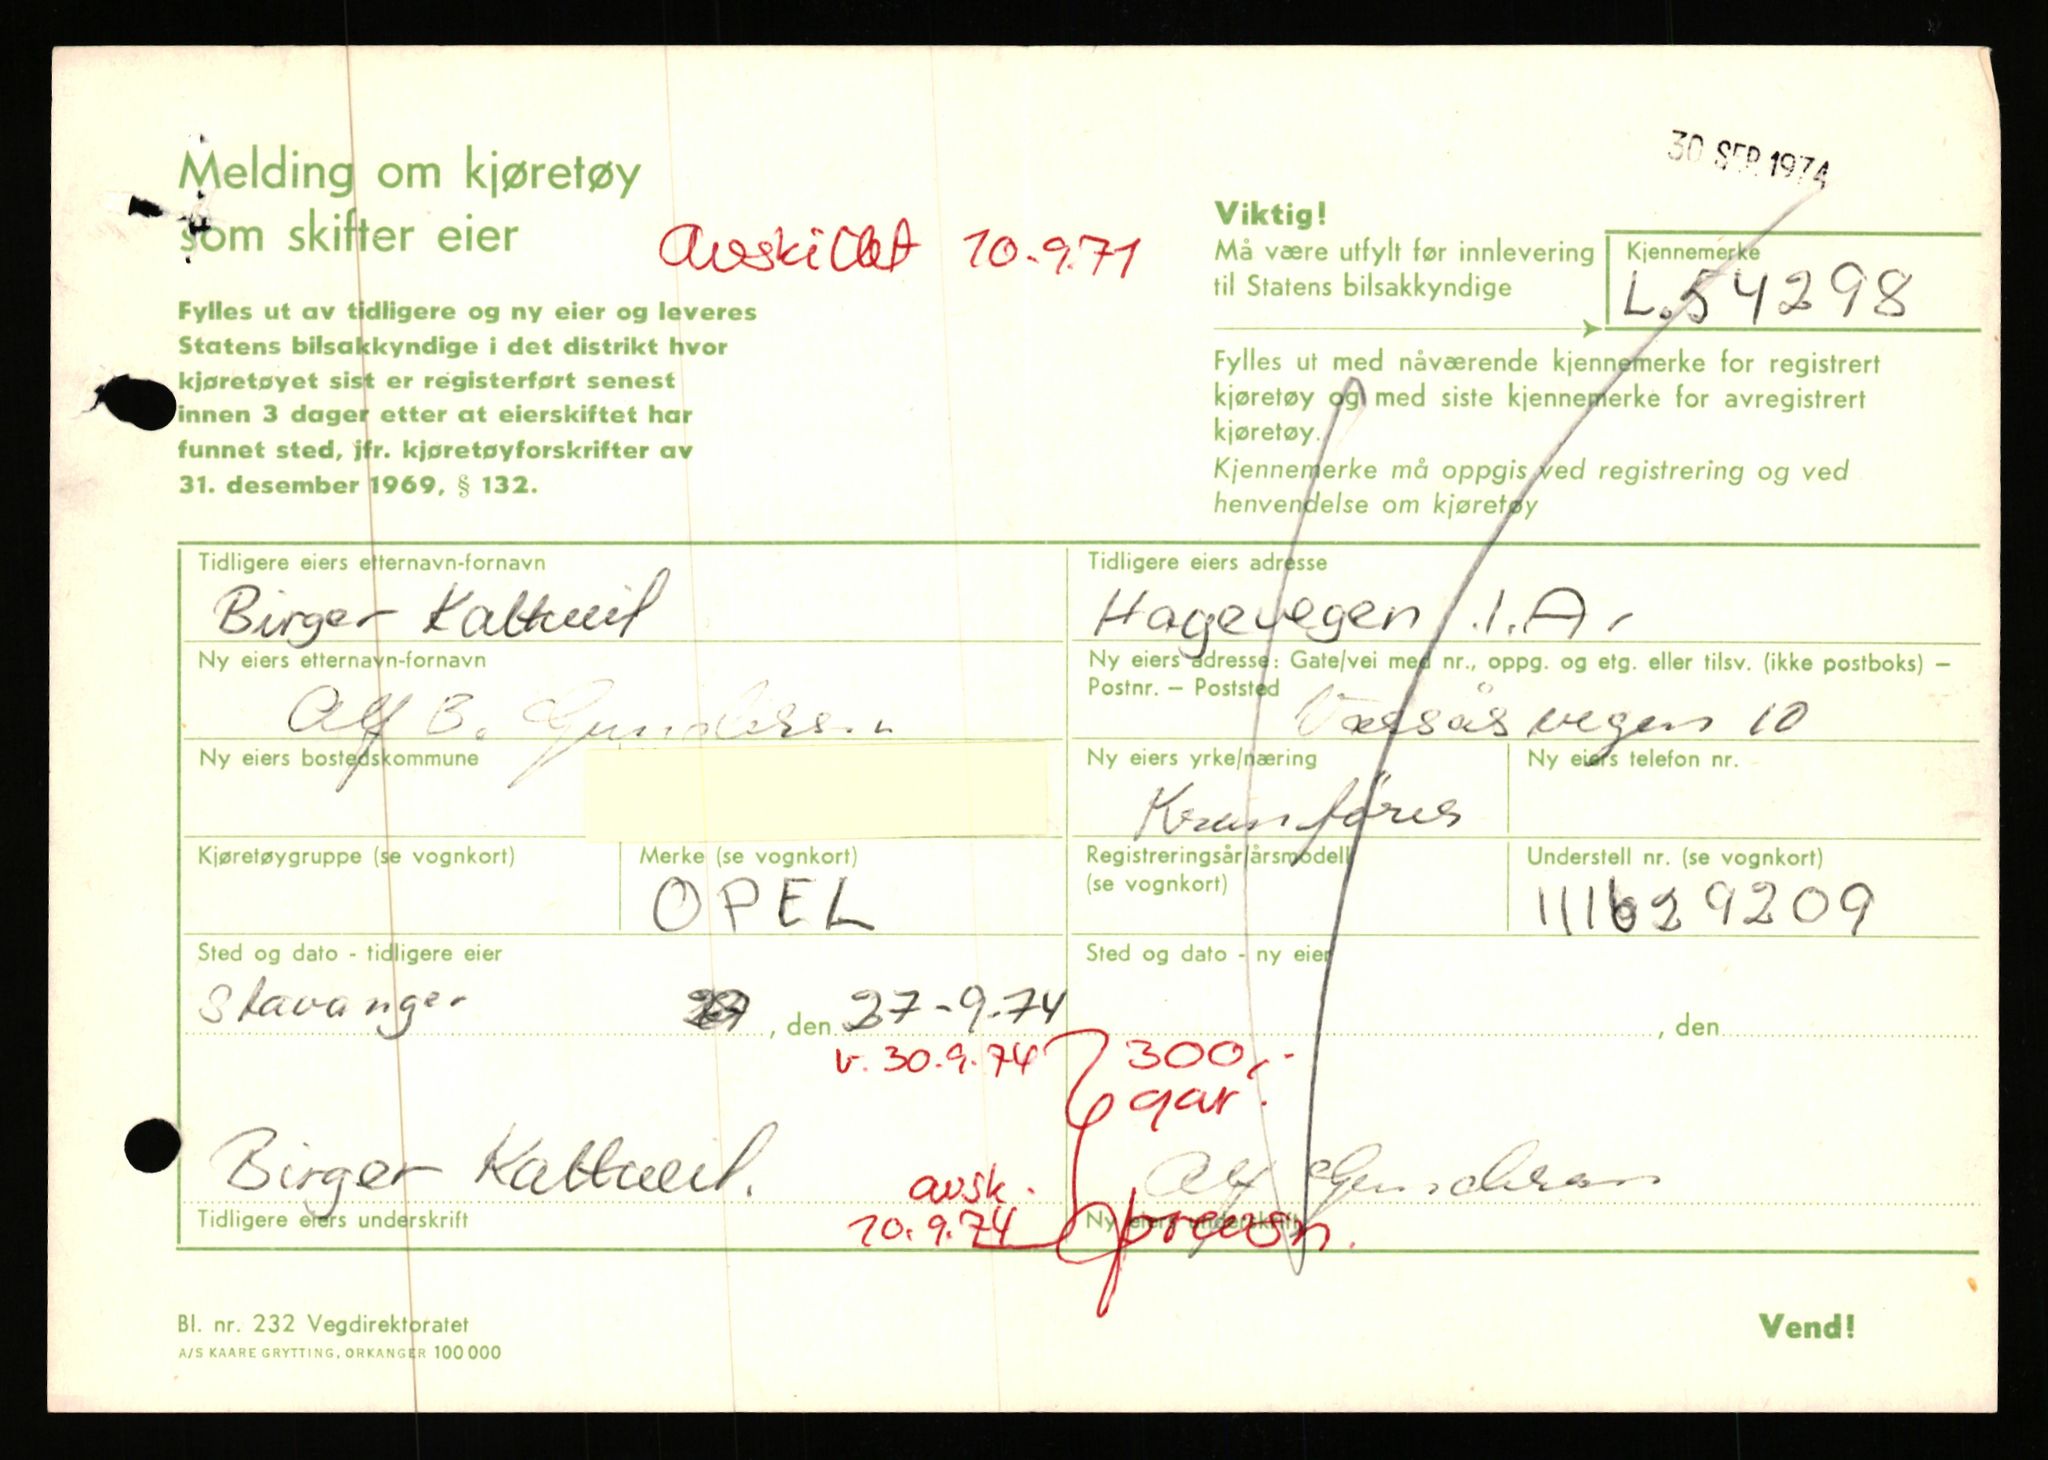 30 SEP. 1974
Melding om kjøretøy
som skifter eier
Avskiltet 10.9.71
Fylles ut av tidligere og ny eier og leveres
Statens bilsakkyndige i det distrikt hvor
kjøretøyet sist er registerført senest
innen 3 dager etter at eierskiftet har
funnet sted, jfr. kjøretøyforskrifter av
31. desember 1969, § 132.
Viktig!
Må være utfylt før innlevering
til Statens bilsakkyndige
Kjennemerke
L.54298
Fylles ut med nåværende kjennemerke for registrert
kjøretøy og med siste kjennemerke for avregistrert
kjøretøy.
Kjennemerke må oppgis ved registrering og ved
henvendelse om kjøretøy
Tidligere eiers etternavn-fornavn
Birger Kaltveit
Tidligere eiers adresse
Hagevegen 1.A.
Ny eiers etternavn-fornavn
Alf B. Gundersen
Ny eiers adresse: Gate/vei med nr., oppg. og etg. eller tilsv. (ikke postboks) –
Postnr. – Poststed
Våssåsvegen 10
Ny eiers bostedskommune
Ny eiers yrke/næring
Kranfører
Ny eiers telefon nr.
Kjøretøygruppe (se vognkort)
Merke (se vognkort)
OPEL
Registreringsår/årsmodell
(se vognkort)
Understell nr. (se vognkort)
111629209
Sted og dato - tidligere eier
Stavanger , den 27-9-74
Sted og dato - ny eier
, den
v. 30.9.74
300,-
gar.
Birger Kaltveit.
Alf Gundersen
avsk.
10.9.74
Tidligere eiers underskrift
Ny eiers underskrift
Bl. nr. 232 Vegdirektoratet
A/S KAARE GRYTTING, ORKANGER 100 000
Vend!